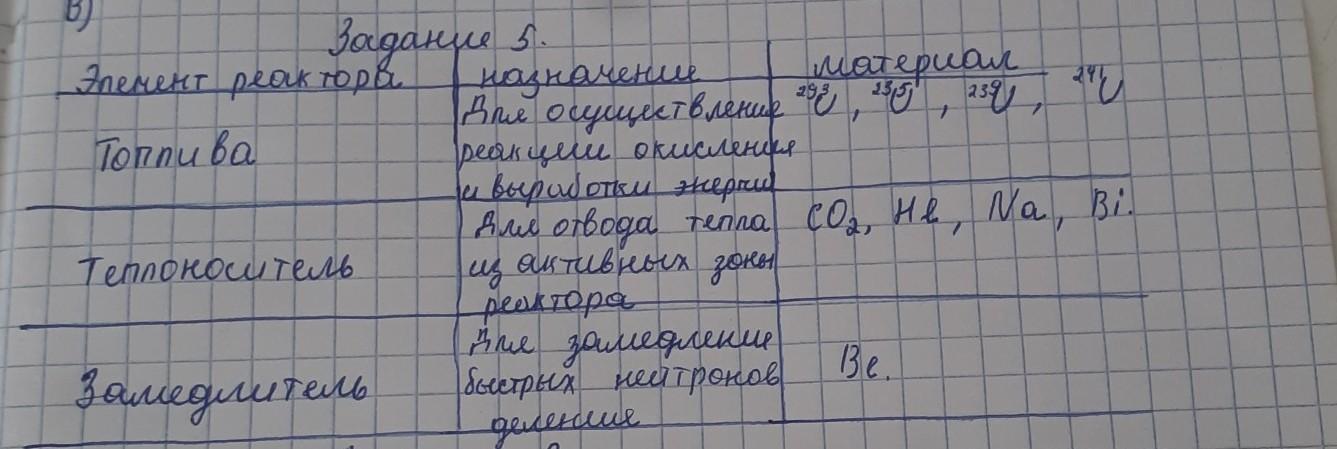 В)
Задание 5.
Элемент реактора назначение материал
Топлива Для осуществление ²³³U, ²³⁵U, ²³⁹U, ²⁴¹U
реакции окисления
и выработки энергии
Теплоноситель Для отвода тепла CO₂, He, Na, Bi.
из активных зоны
реактора
Замедлитель Для замедление Be.
быстрых нейтронов
деления